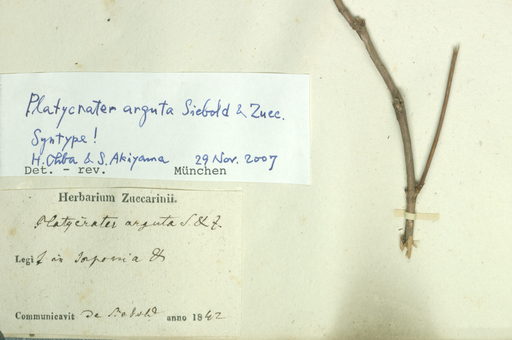 Platycrater arguta Siebold & Zucc.
Syntype!
H. Ohba & S. Akiyama 29 Nov. 2007
Det. - rev. München
Herbarium Zuccarinii.
Platycrater arguta S. & Z.
Legi in Japonia
Communicavit De Siebold anno 1842